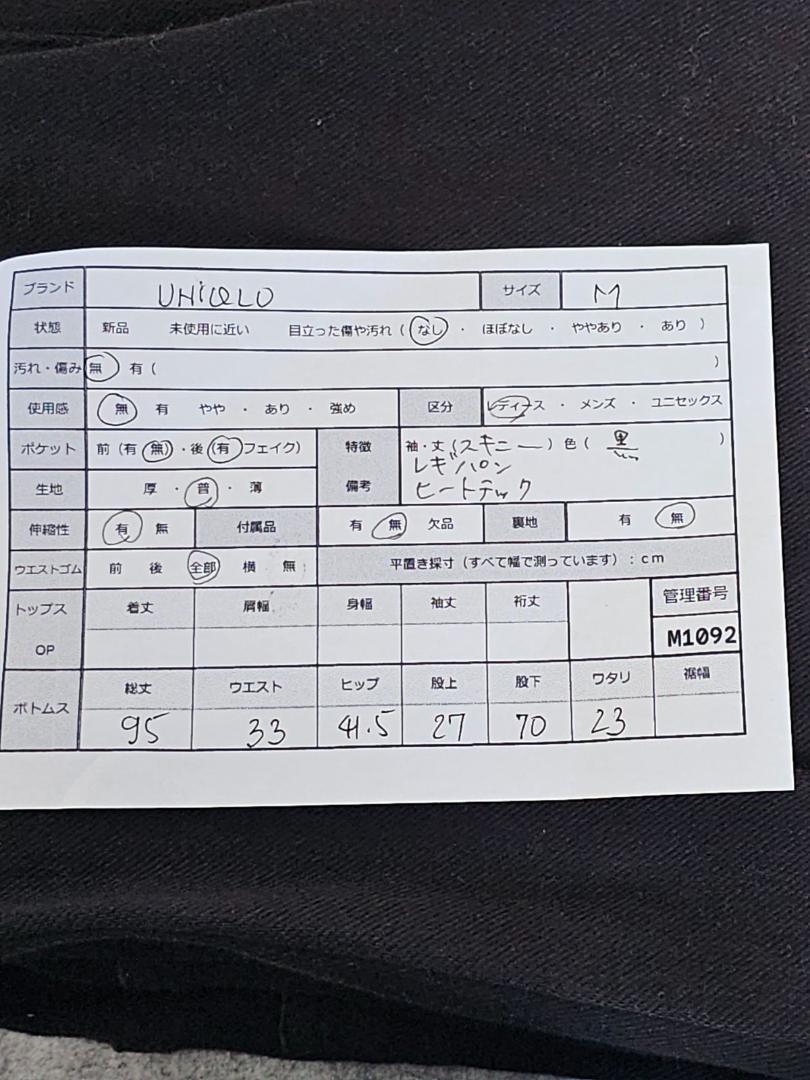 ブランド UNIQLO サイズ M
状態 新品 未使用に近い 目立った傷や汚れ ( なし ・ ほぼなし ・ ややあり ・ あり )
汚れ・傷み 無 有 ( )
使用感 無 有 やや ・ あり ・ 強め 区分 レディース ・ メンズ ・ ユニセックス
ポケット 前 (有 無) ・後 (有 フェイク) 特徴 袖・丈 (スキニー) 色 ( 黒 )
レギパン
生地 厚 ・ 普 ・ 薄 備考 ヒートテック
伸縮性 有 無 付属品 有 無 欠品 裏地 有 無
ウエストゴム 前 後 全部 横 無 平置き採寸 (すべて幅で測っています) : cm
トップス 着丈 肩幅 身幅 袖丈 裄丈 管理番号
OP M1092
ボトムス 総丈 ウエスト ヒップ 股上 股下 ワタリ 裾幅
95 33 41.5 27 70 23